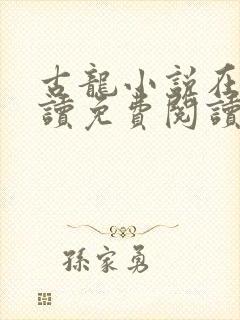 古龍小說在
讀免費閱讀
孫家勇